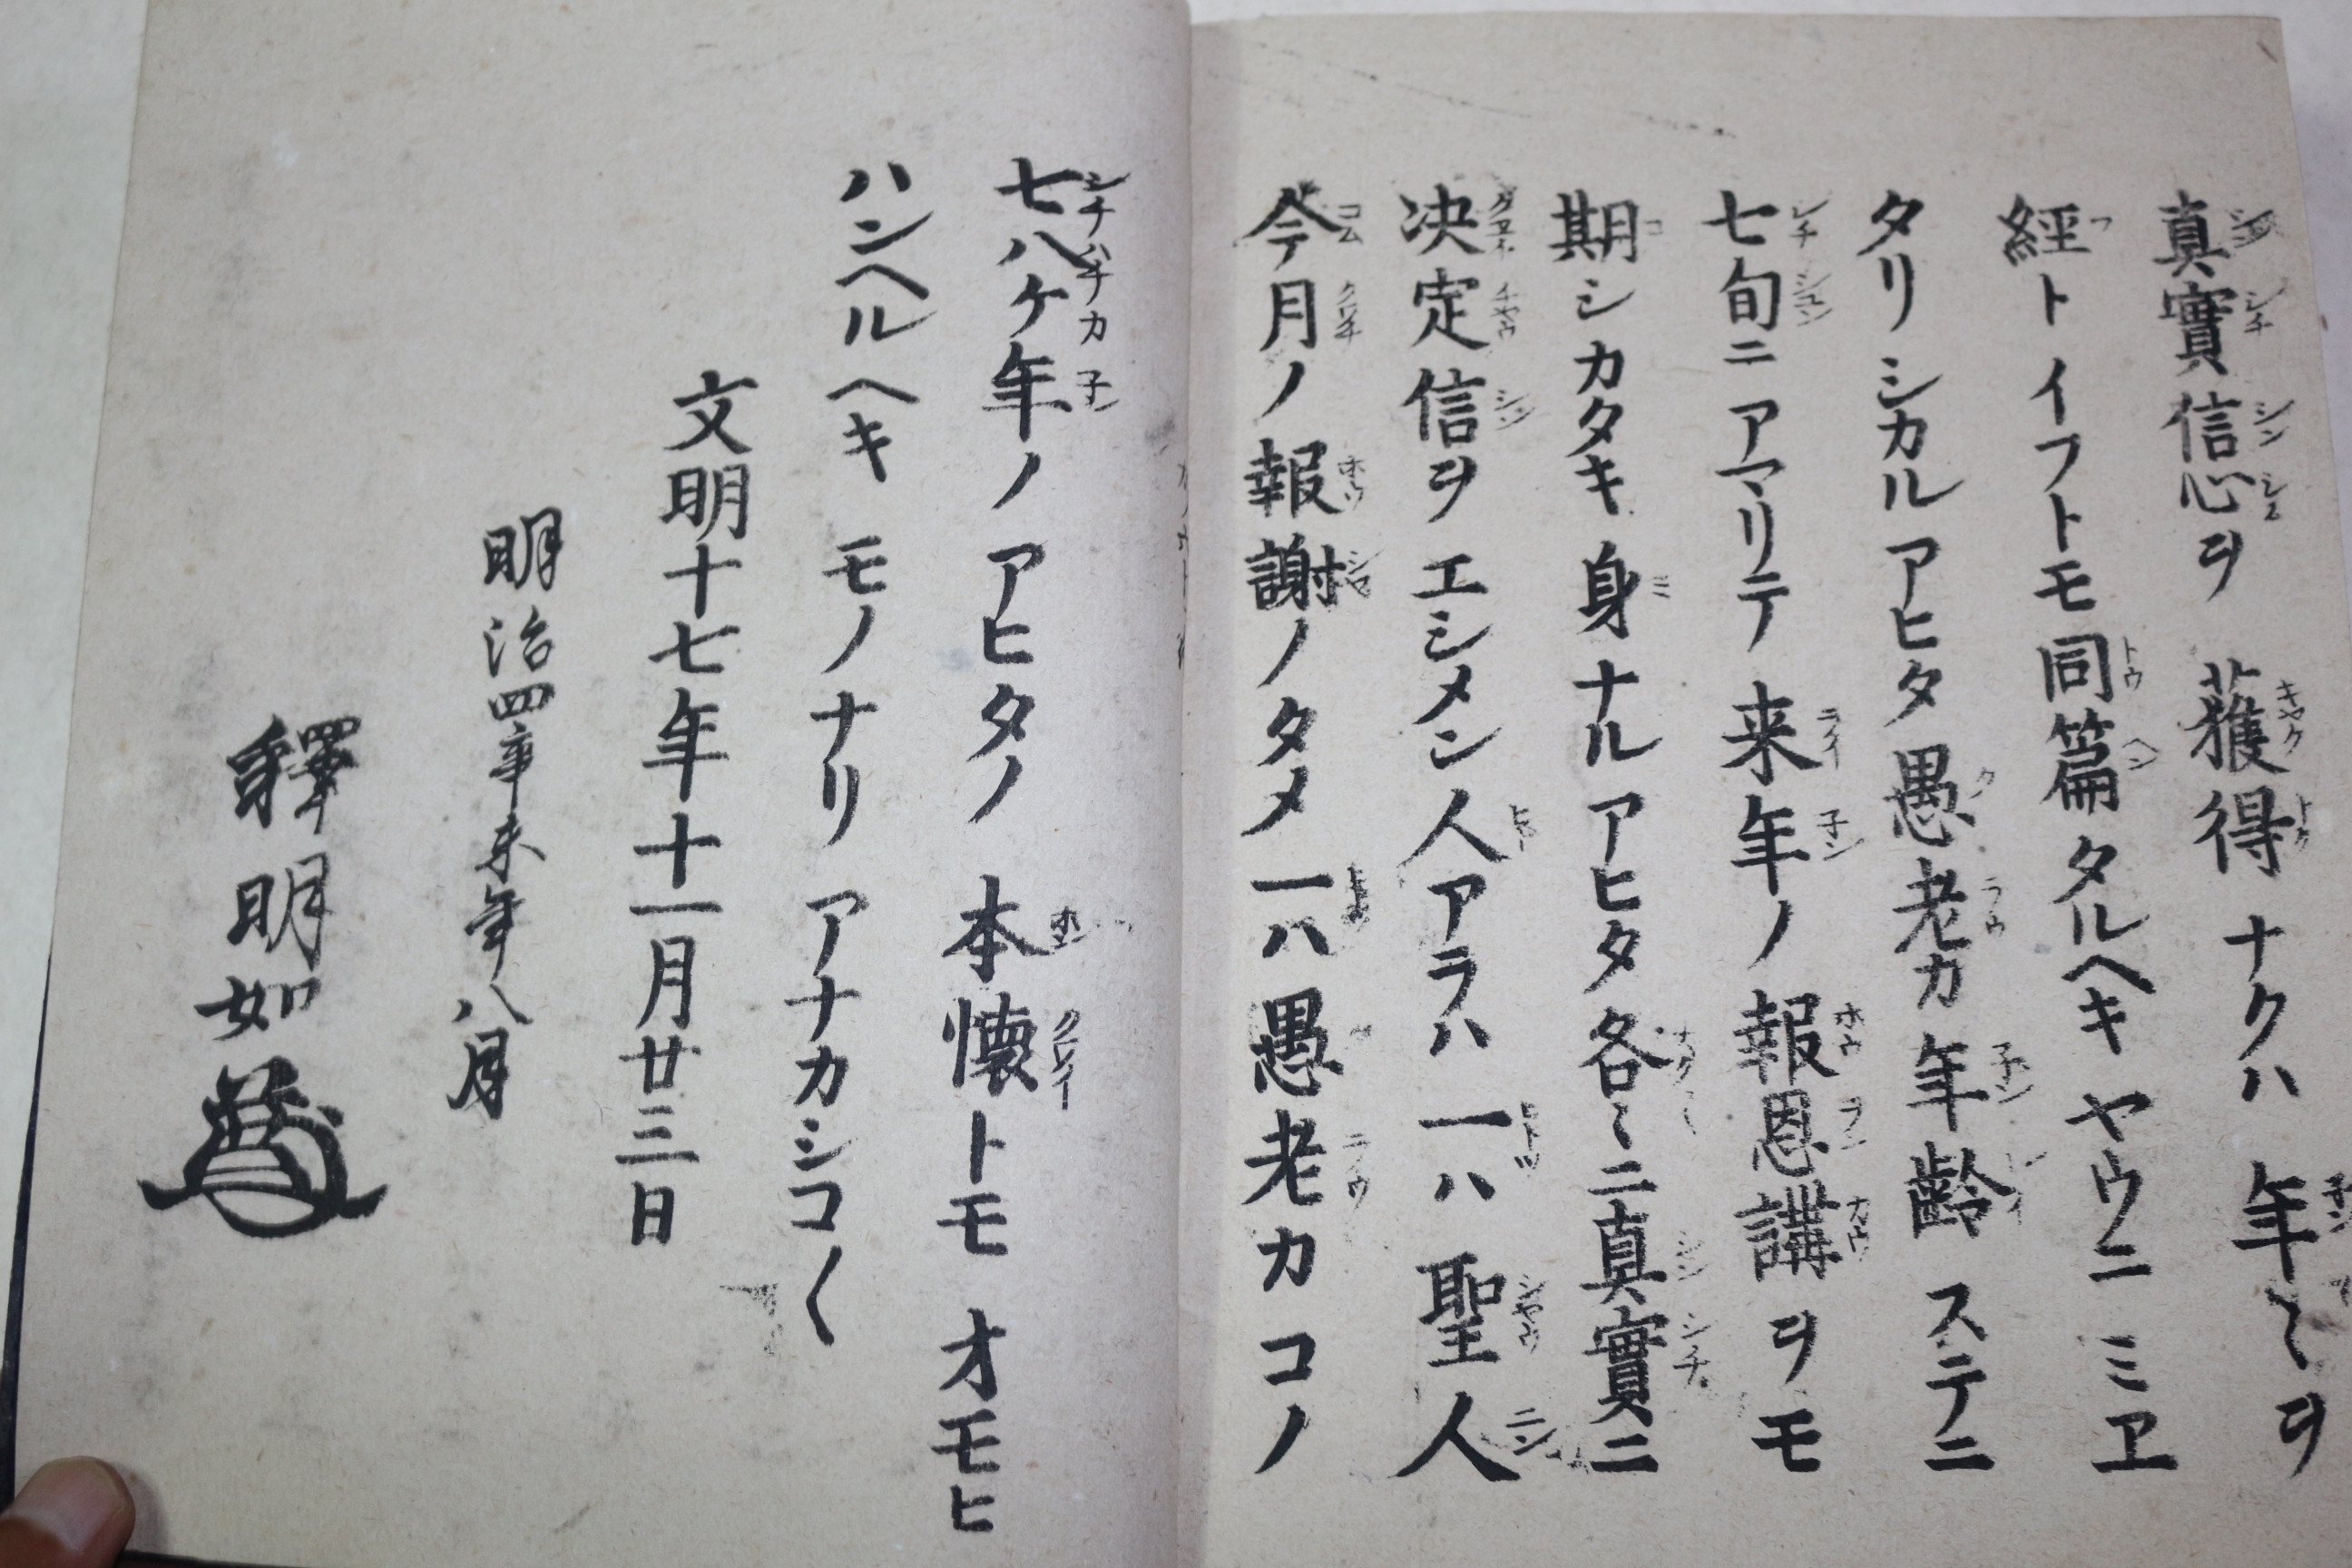 真實信心ヲ獲得ナクハ年〻ヲ
経トイフトモ同篇タルヘキヤウニミヱ
タリシカルアヒタ愚老カ年齢ステニ
七旬ニアマリテ来年ノ報恩講ヲモ
期シカタキ身ナルアヒタ各〻ニ真實ニ
决定信ヲエシメン人アラハ一ハ聖人
今月ノ報謝ノタメ一ハ愚老カコノ
七八ケ年ノアヒタノ本懐トモオモヒ
ハンヘルヘキモノナリアナカシコ〱
文明十七年十一月廿三日
明治四辛未年八月
釋明如